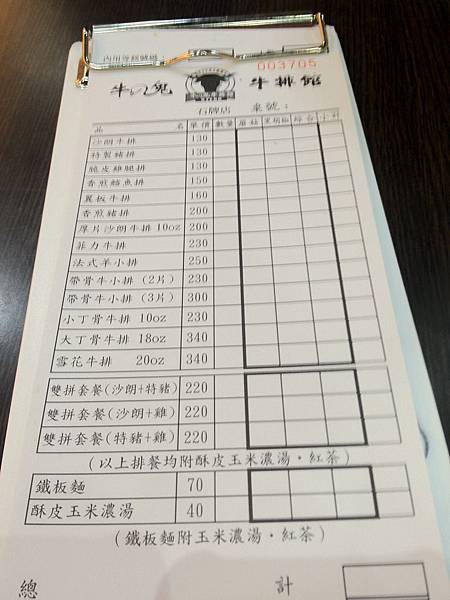 003705
牛排館
石牌店 桌號：
品 名 單價 數量 蘑菇 黑胡椒 綜合 小計
沙朗牛排 130
特製豬排 130
脆皮雞腿排 130
香煎鱈魚排 150
翼板牛排 160
香煎豬排 200
厚片沙朗牛排 10oz 200
菲力牛排 230
法式羊小排 250
帶骨牛小排 (2片) 230
帶骨牛小排 (3片) 300
小丁骨牛排 10oz 230
大丁骨牛排 18oz 340
雪花牛排 20oz 340
雙拼套餐(沙朗+特豬) 220
雙拼套餐(沙朗+雞) 220
雙拼套餐(特豬+雞) 220
(以上排餐均附酥皮玉米濃湯·紅茶)
鐵板麵 70
酥皮玉米濃湯 40
(鐵板麵附玉米濃湯·紅茶)
總 計